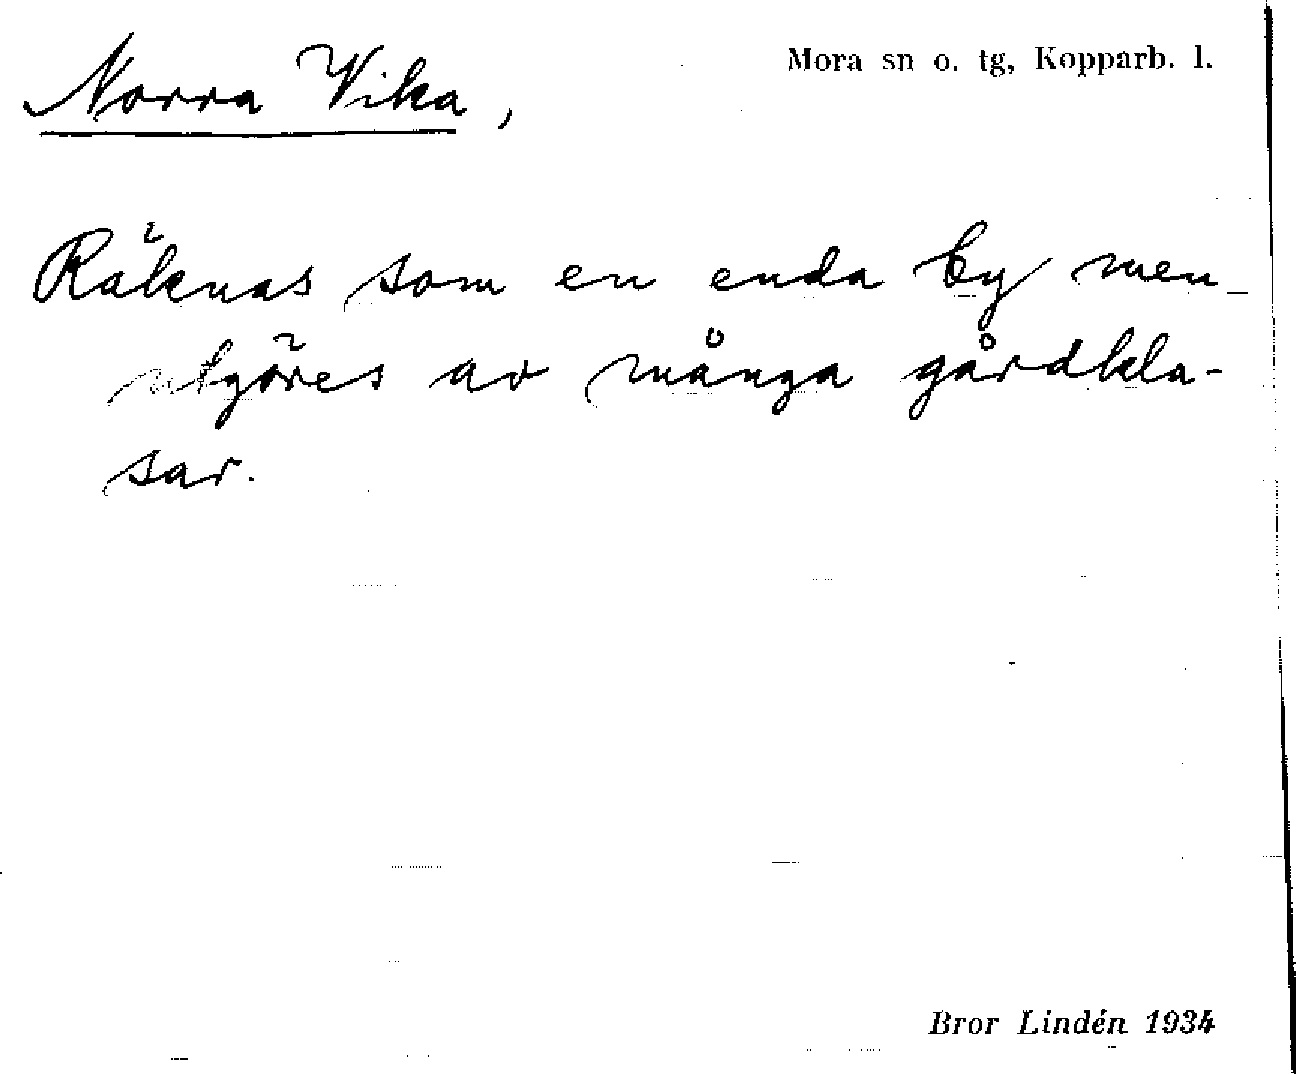 Norra Vika,
Mora sn o. tg, Kopparb. l.
Räknas som en enda by men
utgöres av många gårdkla-
sar.
Bror Lindén 1934